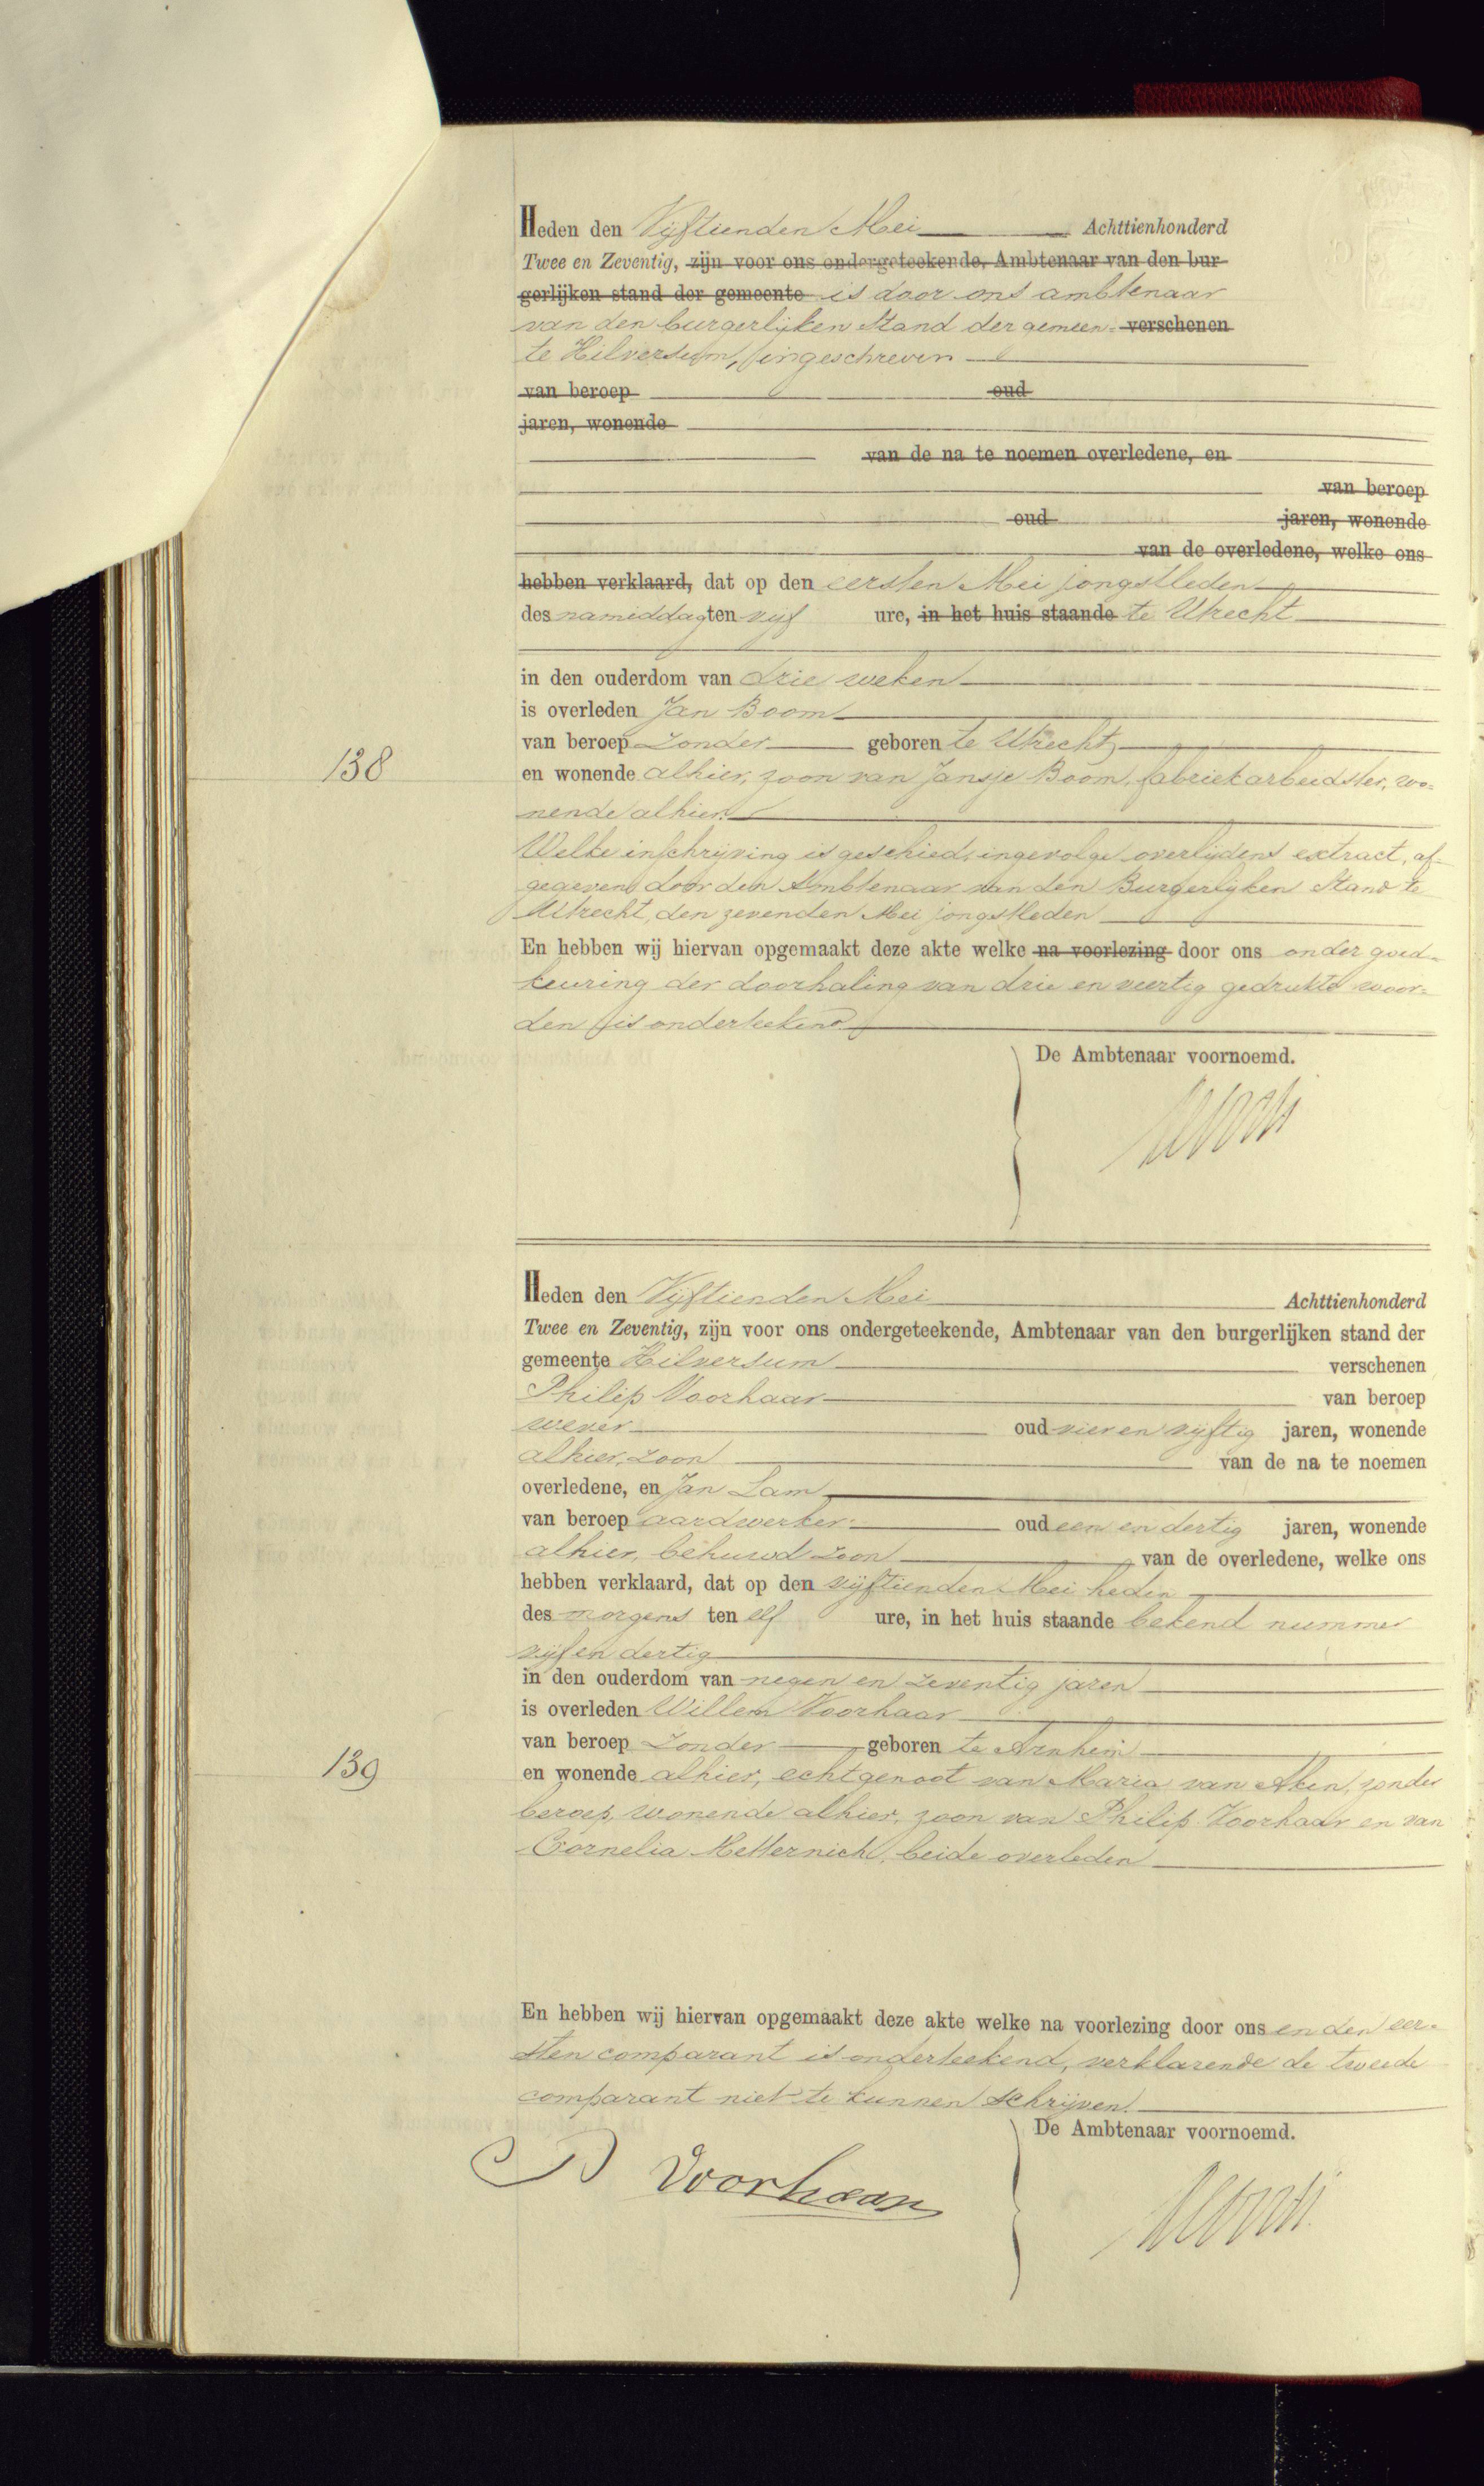 Heden den Vijftienden Mei Achttienhonderd
Twee en Zeventig, zijn voor ons ondergeteekende, Ambtenaar van den bur-
gerlijken stand der gemeente is door ons ambtenaar
van den burgerlijken Stand der gemeen- verschenen
te Hilversum, ingeschreven
van beroep oud
jaren, wonende
van de na te noemen overledene, en
van beroep
oud jaren, wonende
van de overledene, welke ons
hebben verklaard, dat op den eersten Mei jongstleden
des namiddag ten vijf ure, in het huis staande te Utrecht
in den ouderdom van drie weken
is overleden Jan Boom
van beroep zonder geboren te Utrecht,
138
en wonende alhier, zoon van Jansje Boom, fabriekarbeidster, wo=
nende alhier.
Welke inschrijving is geschied, ingevolge overlijdens extract, af-
gegeven door den Ambtenaar van den Burgerlijken Stand te
Utrecht, den zevenden Mei jongstleden
En hebben wij hiervan opgemaakt deze akte welke na voorlezing door ons onder goed=
keuring der doorhaling van drie en veertig gedrukte woor=
den is onderteekend
De Ambtenaar voornoemd.
Heden den Vijftienden Mei Achttienhonderd
Twee en Zeventig, zijn voor ons ondergeteekende, Ambtenaar van den burgerlijken stand der
gemeente Hilversum verschenen
Philip Voorhaar van beroep
wever oud vier en vijftig jaren, wonende
alhier, zoon van de na te noemen
overledene, en Jan Lam
van beroep aardwerker oud een en dertig jaren, wonende
alhier, behuwd zoon van de overledene, welke ons
hebben verklaard, dat op den vijftienden Mei heden
des morgens ten elf ure, in het huis staande bekend nummer
vijf en dertig
in den ouderdom van negen en zeventig jaren
is overleden Willem Voorhaar
van beroep zonder geboren te Arnhem
139
en wonende alhier, echtgenoot van Maria van Aken, zonder
beroep, wonende alhier, zoon van Philip Voorhaar en van
Cornelia Metternich, beide overleden
En hebben wij hiervan opgemaakt deze akte welke na voorlezing door ons en den eer=
sten comparant is onderteekend, verklarende de tweede
comparant niet te kunnen schrijven.
De Ambtenaar voornoemd.
P Voorhaar